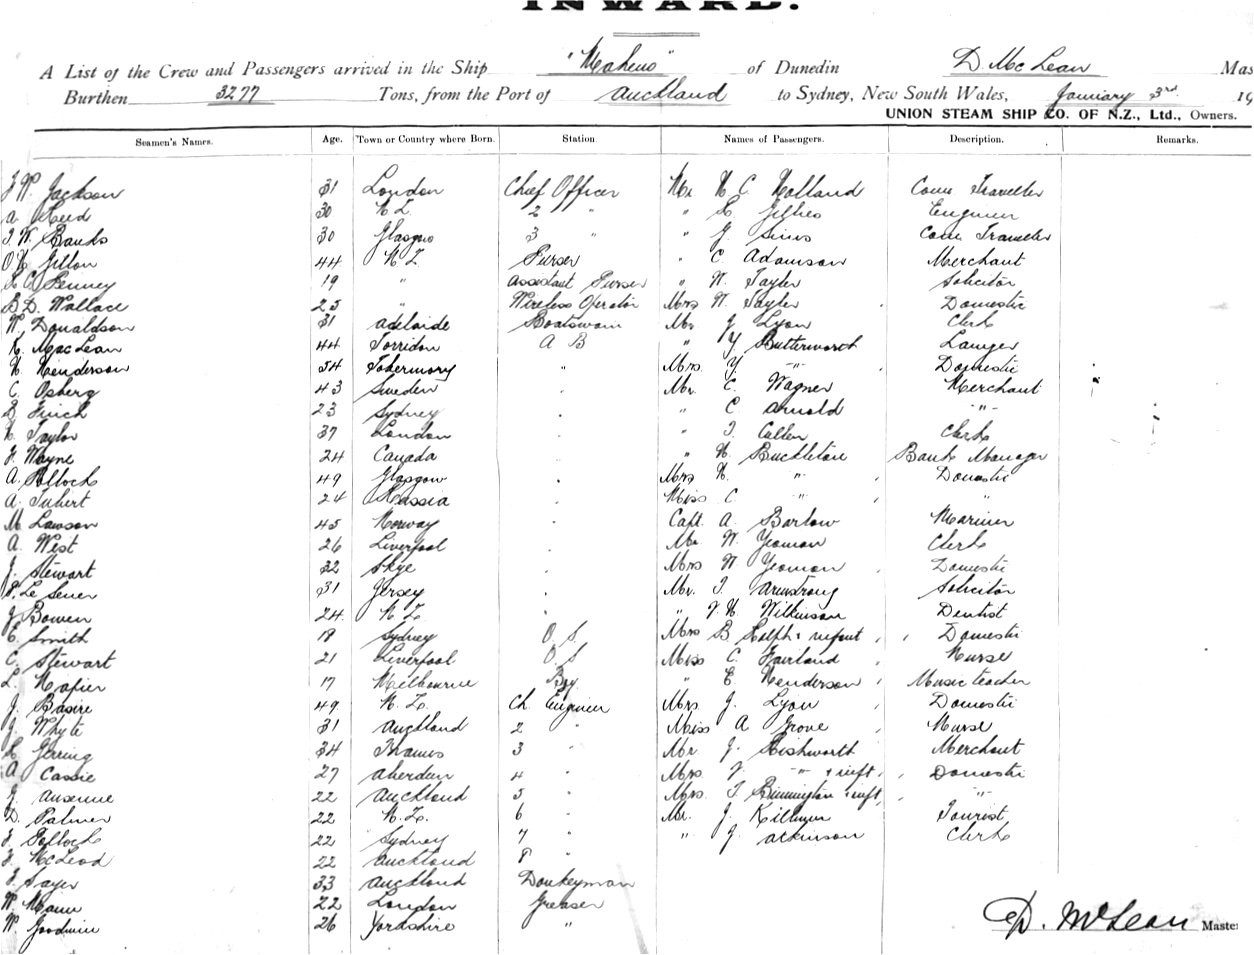 INWARD.
A List of the Crew and Passengers arrived in the Ship "Maheno" of Dunedin D. McLean Mas
Burthen 3277 Tons, from the Port of Auckland to Sydney, New South Wales, January 3rd 19
UNION STEAM SHIP CO. OF N.Z., Ltd., Owners.
Seamen's Names. Age. Town or Country where Born. Station. Names of Passengers. Description. Remarks.
W. Jackson 31 London Chief Officer Mr H C Holland Com Traveller
A. Reed 30 N Z 2 " " Jeffries Engineer
W. Banks 30 Glasgow 3 " " J. Sims Com Traveller
44 N Z Purser " C Adamson Merchant
Penney 19 " Assistant Purser " W. Tayler Solicitor
D. Wallace 25 " Wireless Operator Mrs W. Tayler Domestic
W. Donaldson 31 Adelaide Boatswain Mr J Lyon Clerk
K. MacLean 44 Torridon A B " Y Butterworth Lawyer
H. Henderson 54 Tobermory " Mrs Y -"- Domestic
C. Osberg 43 Sweden Mr C. Wagner Merchant
Finch 23 Sydney " C Arnold -"-
H. Taylor 37 London " T. Callen Clerk
Wayne 24 Canada " H. Buckleton Bank Manager
A. Pollock 49 Glasgow Mrs H. " Domestic
A. 24 Russia Miss C " "
M. Lawson 45 Norway Capt. A. Barlow Mariner
A. West 26 Liverpool Mr W. Yeoman Clerk
J. Stewart 32 Skye Mrs W Yeoman Domestic
Le Seuer 31 Jersey Mr. T. Armstrong Solicitor
J. Bowen 24 N Z " H. Wilkinson Dentist
E. Smith 18 Sydney O S Mrs B Ralph & infant Domestic
C. Stewart 21 Liverpool O. S Miss C. Fairland Nurse
L. Napier 17 Melbourne Boy " E Henderson Music teacher
J. Basire 49 N. Z. Ch. Engineer Mrs J. Lyon Domestic
J. Whyte 31 Auckland 2 " Miss A Grove Nurse
34 Thames 3 " Mr J. Rishworth Merchant
A Cassie 27 Aberdeen 4 " Mrs J. -"- & inft. Domestic
22 Auckland 5 " Mrs. T Binnington & inft, -"-
D. Palmer 22 N.Z. 6 " Mr. J. Tourist
Pollock 22 Sydney 7 " " J. Atkinson Clerk
McLeod 22 Auckland 8 "
Sayer 33 Auckland Donkeyman
W. Mann 22 London Greaser
W. Goodwin 26 Yorkshire "
D. McLean Master